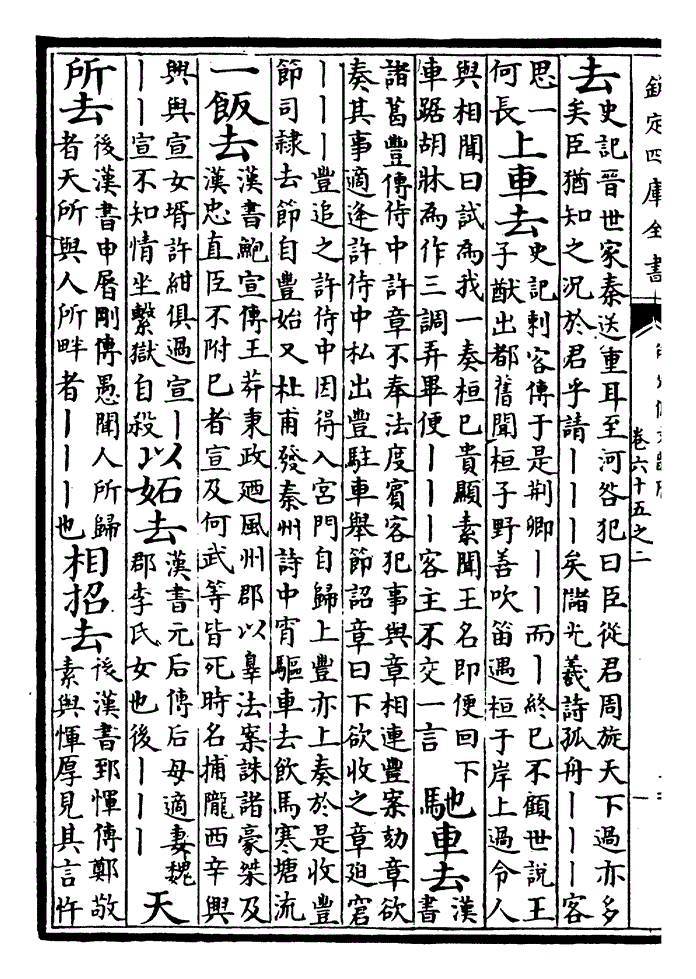 欽定四庫全書
卷六十五之二
去 史記晉世家秦送重耳至河咎犯曰臣從君周旋天下過亦多
矣臣猶知之況於君乎請丨丨丨矣儲光羲詩孤舟丨丨丨客
思一
何長
上車去 史記刺客傳于是荆卿丨丨而丨終已不顧世說王
子猷出都舊聞桓子野善吹笛遇桓于岸上過令人
與相聞曰試為我一奏桓已貴顯素聞王名即便回下
車踞胡牀為作三調弄畢便丨丨丨客主不交一言
馳車去 漢
書
諸葛豐傳侍中許章不奉法度賓客犯事與章相連豐案劾章欲
奏其事適逢許侍中私出豐駐車舉節詔章曰下欲收之章廹窘
丨丨丨豐追之許侍中因得入宮門自歸上豐亦上奏於是收豐
節司隸去節自豐始又杜甫發秦州詩中宵驅車去飲馬寒塘流
一飯去 漢書鮑宣傳王莽秉政廼風州郡以辠法案誅諸豪桀及
漢忠直臣不附已者宣及何武等皆死時名捕隴西辛興
興與宣女壻許紺俱過宣丨
丨丨宣不知情坐繫獄自殺
以妬去 漢書元后傳后母適妻魏
郡李氏女也後丨丨丨
天
所去 後漢書申屠剛傳愚聞人所歸
者天所與人所畔者丨丨丨也
相招去 後漢書郅惲傳鄭敬
素與惲厚見其言忤